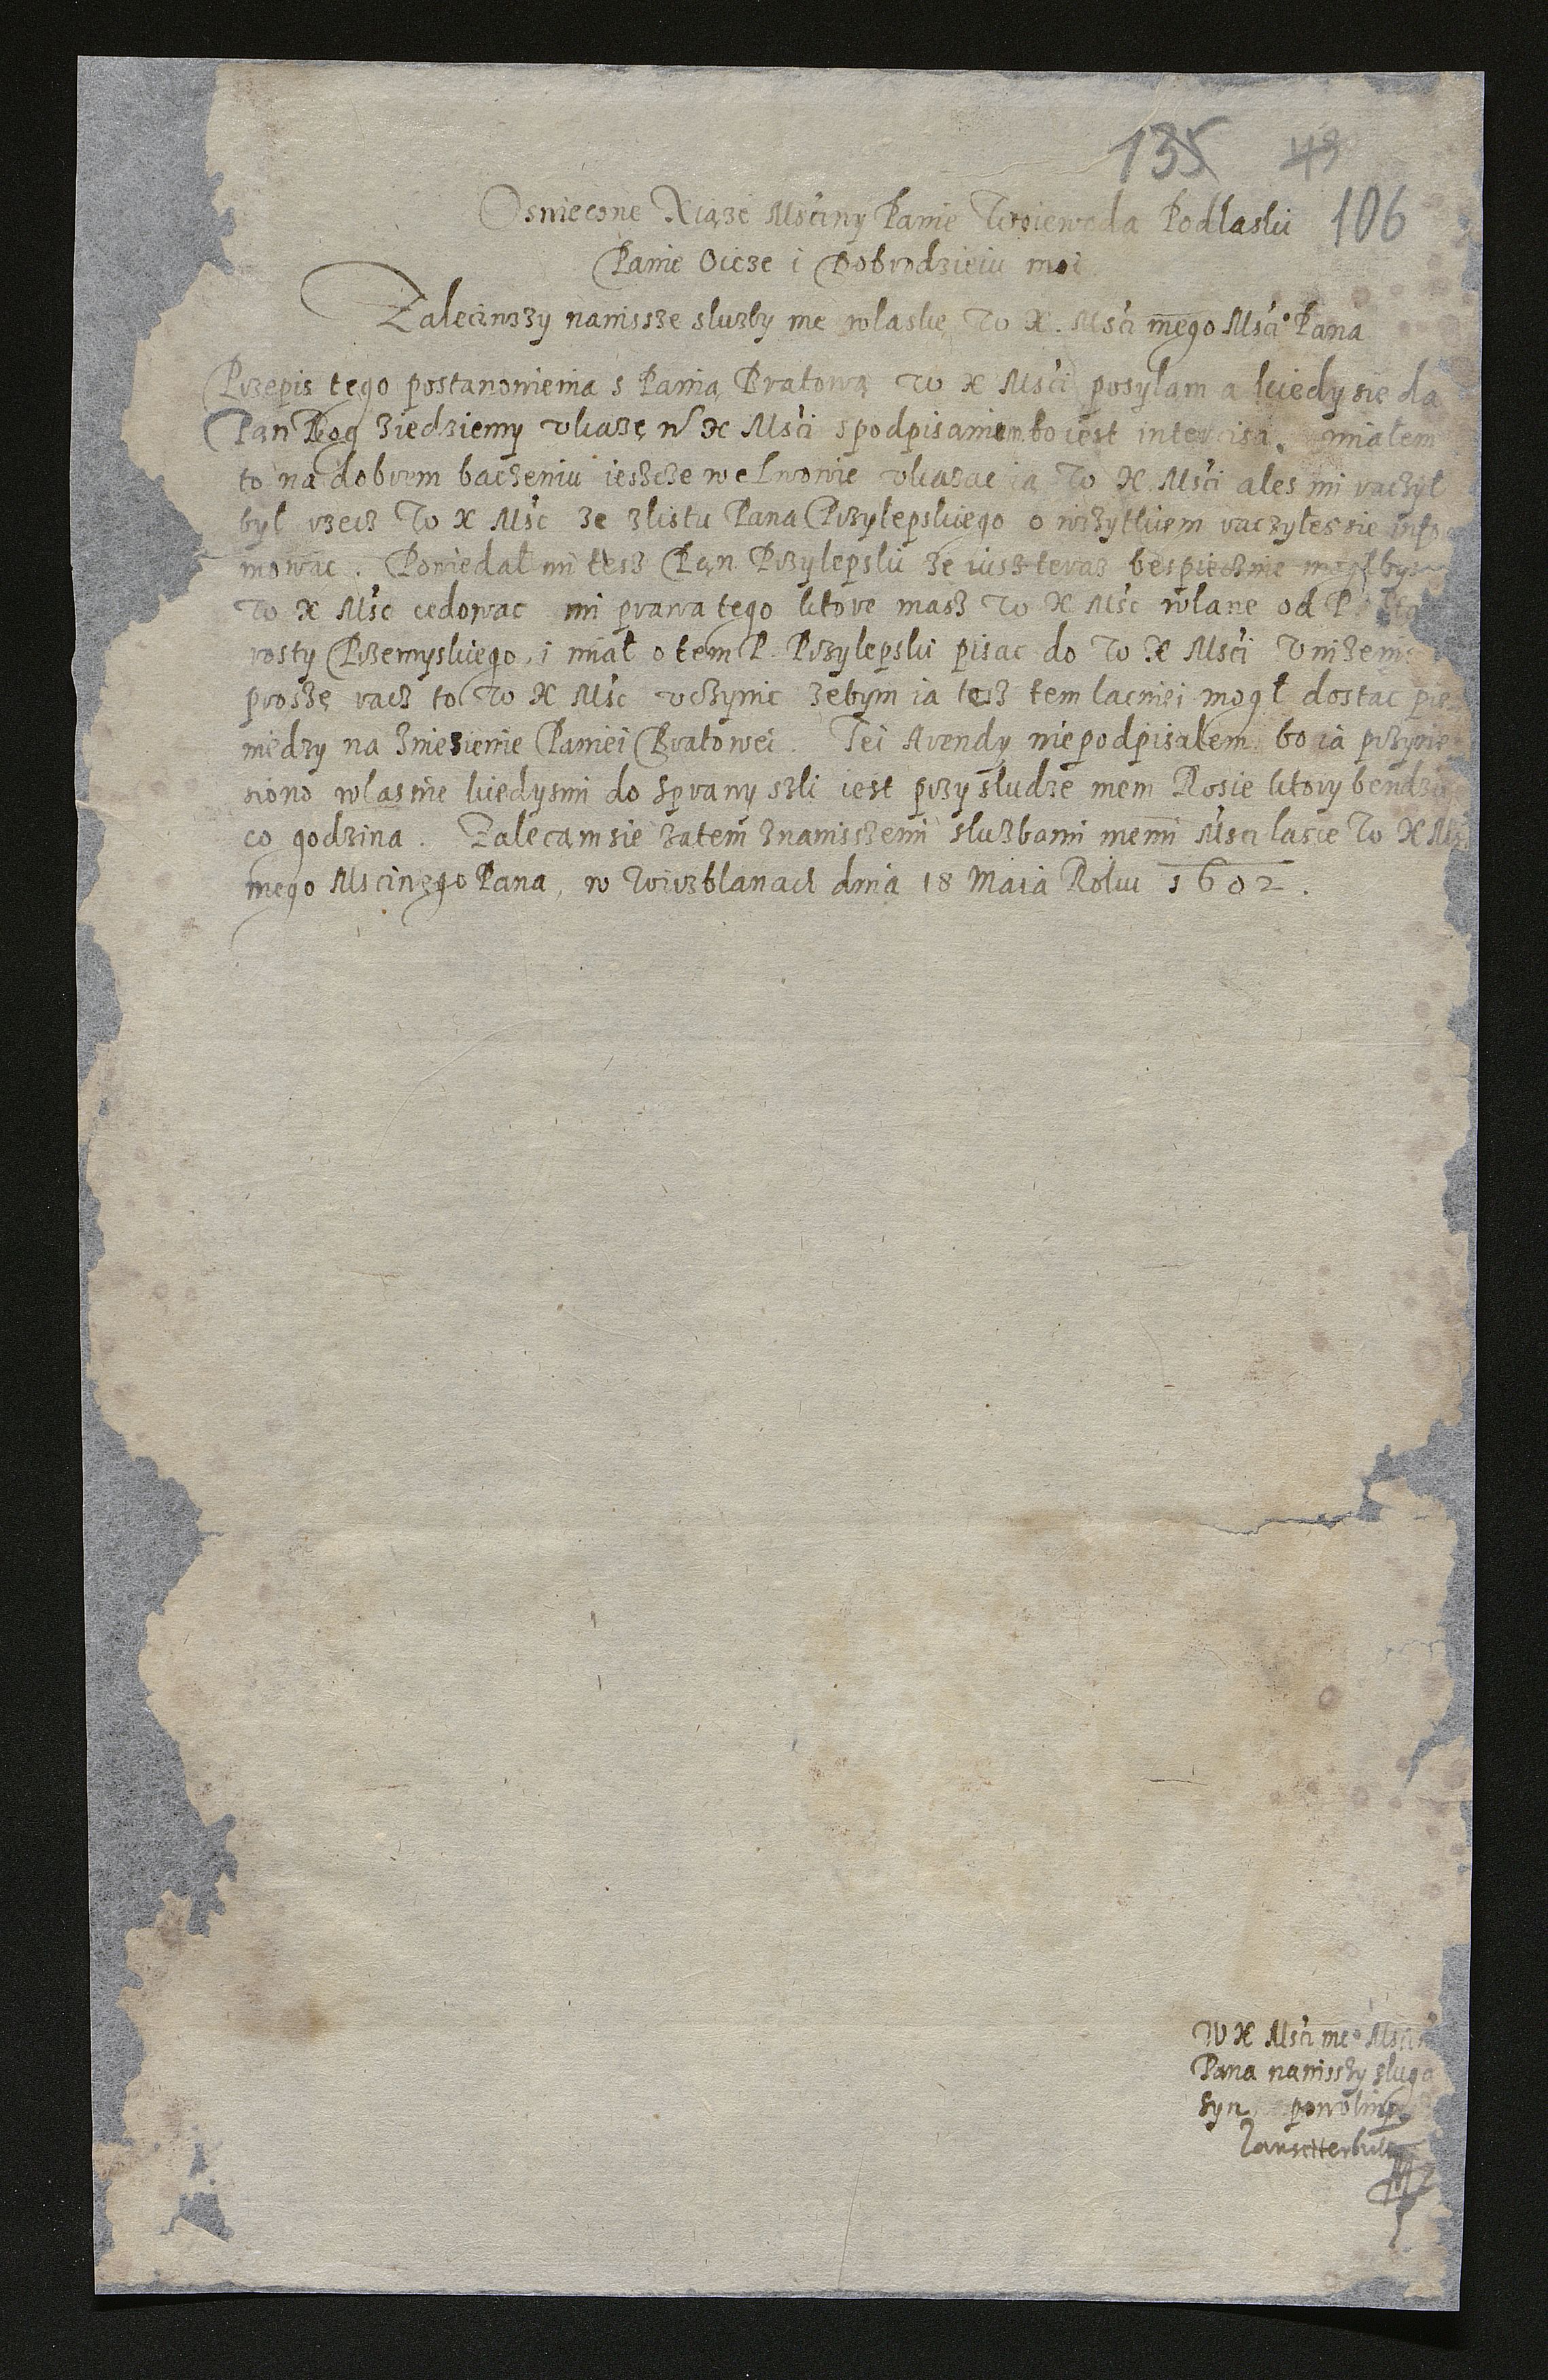 135 49
106
Oswiecone Xiąże Mśćiny Panie Woiewoda Podlaski
Panie Oicze i Dobrodzieiu moi
Zaleciwszy nanissze sluzby me wlaskę W X. Mśći mego Mśći° Pana
Przepis tego postanowienia s Panią Bratową W X Mśći posylam a kiedy sie da
Pan Bog ziedziemy ukazę W X Mśći spodpisaniem bo iest intercisa. mialem
to na dobrem baczeniu ieszcze we Lwowie ukazac ia W X Mśći ales mi raczyl
byl rzecz W X Mśc ze zlistu Pana Przylepskiego o wszytkiem raczyles sie infor
mowac. Powiedał mi tesz Pan Przylepski ze iusz teraz bespiecznie mogłbys
W X Mśc cedowac mi prawa tego ktore masz W X Mśc wlane od P Sta
rosty Przemyskiego, i miał o tem P. Przylepski pisac do W X Mśći Unizenie
proszę racz to W X Mśc uczynic zebym ia tesz tem lacniei mogł dostac pie
niedzy na zniesienie Paniei Bratowei. Tei Arendy niepodpisalem bo ia przynie
siono wlasnie kiedysmi do sprawy szli iest przy sludze mem Rosie ktory bendzie
co godzina. Zalecam sie zatem znanisszemi sluzbami memi Mśći lasce W X Mśći
mego Mścinego Pana, w Wirzblanach dnia 18 Maia Roku 1602.
W X Mśći me° Mśći°
Pana nanisszy sluga
syn powolny